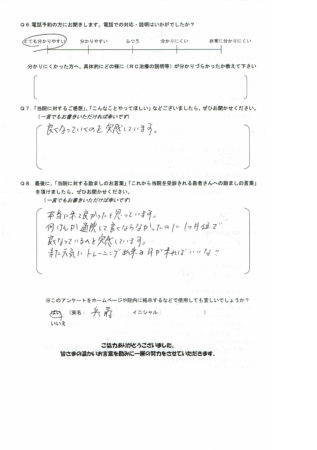 Q6.電話予約の方にお聞きします。電話での対応・説明はいかがでしたか?
とても分かりやすい 分かりやすい ふつう 分かりにくい 非常に分かりにくい
分かりにくかった方へ、具体的にどの様に(RC治療の説明等)が分かりづらかったか教えて下さい
Q7.「当院に対するご感想」、「こんなことやってほしい」などございましたら、ぜひお聞かせください。
(一言でもお書きいただければ幸いです)
良くなっていくのを実感しています。
Q8.最後に、「当院に対する励ましのお言葉」「これから当院を受診される患者さんへの励ましの言葉」
を頂けましたら、ぜひお聞かせください。
(一言でもお書きいただければ幸いです)
本当に来て良かったと思っています。
何けんか通院して良くならなかったのに1ヶ月位で
良くなっているのを実感しています。
また元気にトレーニング出来る日が来ればいいな!!
※このアンケートをホームページや院内に掲示するなどで使用しても宜しいでしょうか?
はい (実名: イニシャル: )
いいえ
ご協力ありがとうございました。
皆さまの温かいお言葉を励みに一層の努力をさせていただきます。